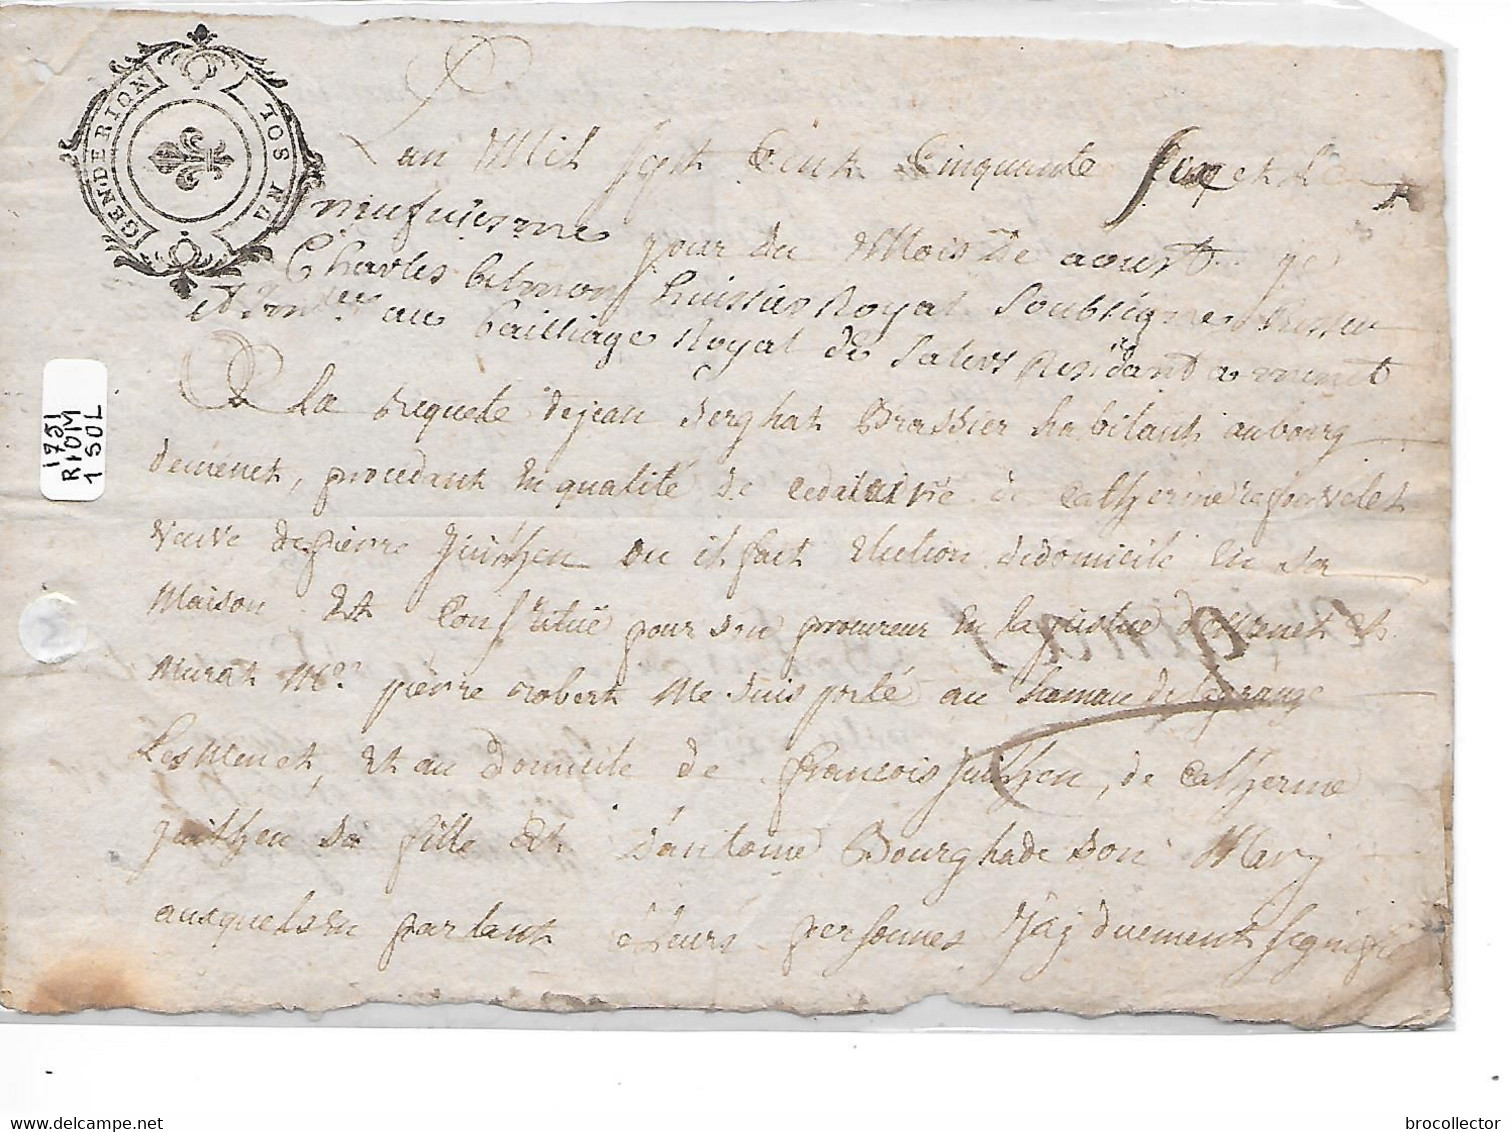 GEN·DE RION
UN SOL
Lan Mil sept Cent Cinquante et le
neufuiesme jour du Mois de aoust
Charles huissier Royal Soubsigne
au bailliage Royal de Salers Residant a menet
A la requete de jean serghat Brassier habitant au bourg
demenet, procedant En qualité de de Catherine
veuve de pierre juithen ou il fait Election dedomicile En sa
Maison Et Constitué pour son procureur En la justice demenet et
Murat Me. pierre robert Me suis porté au hamau de lagrange
Les Menet, Et au domicile de francois juithen, de Catherine
juithen sa fille Et d'antoine Bourghade son Mary
ausquels En parlant a leurs personnes J'ay duement signifié
1751
RIOM
1 SOL
www.delcampe.net
brocollector